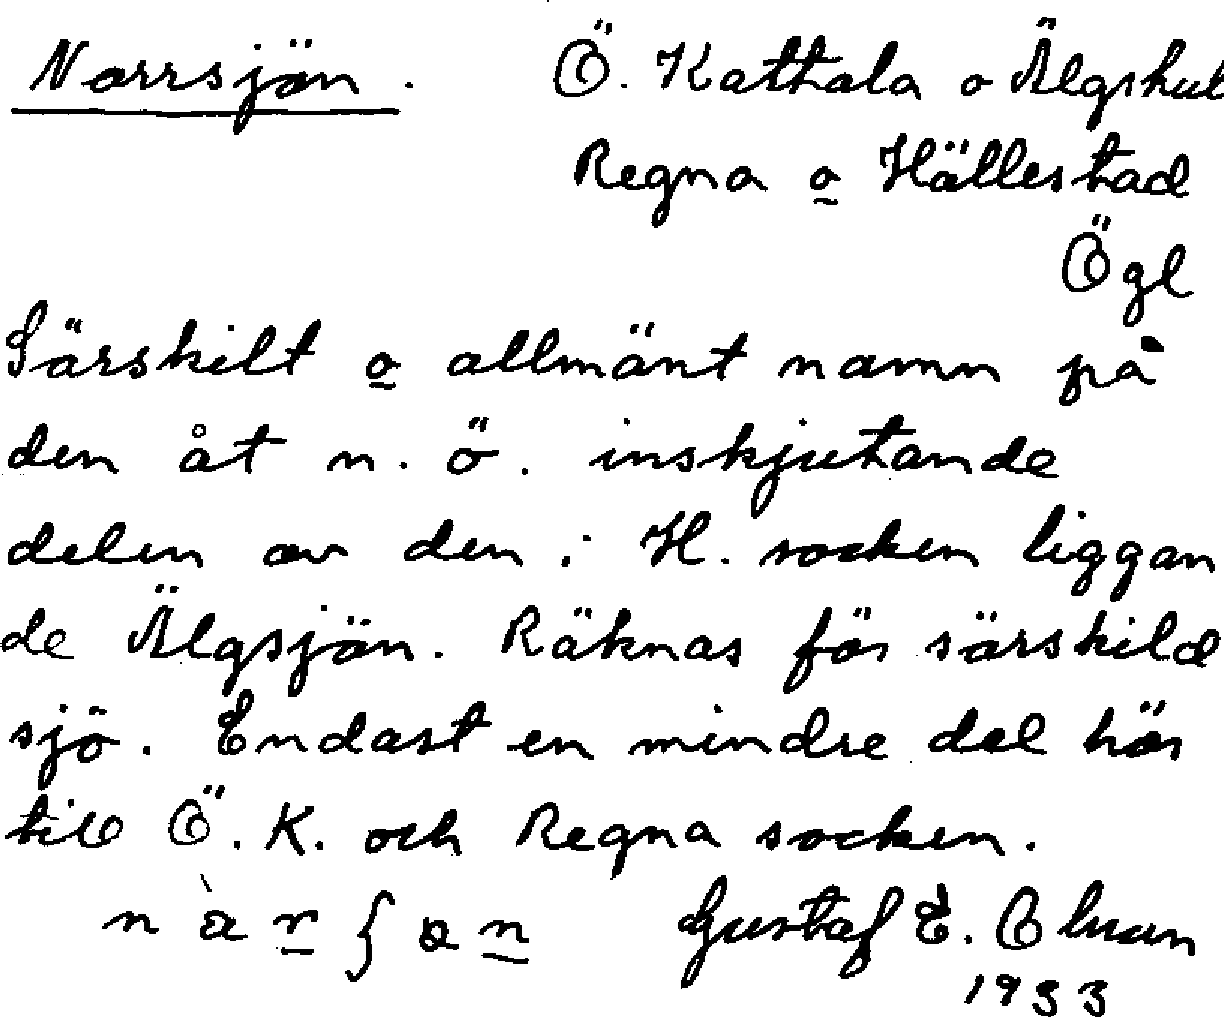 Norrsjön. Ö. Kathala o Älghul
Regna o Hällestad
Ögl
Särskilt o allmänt namn på
den åt n. ö. inskjutande
delen av den i H. socken liggan
de Älgsjön. Räknas för särskild
sjö. Endast en mindre del hör
till Ö. K. och Regna socken.
Gustaf E.
1933